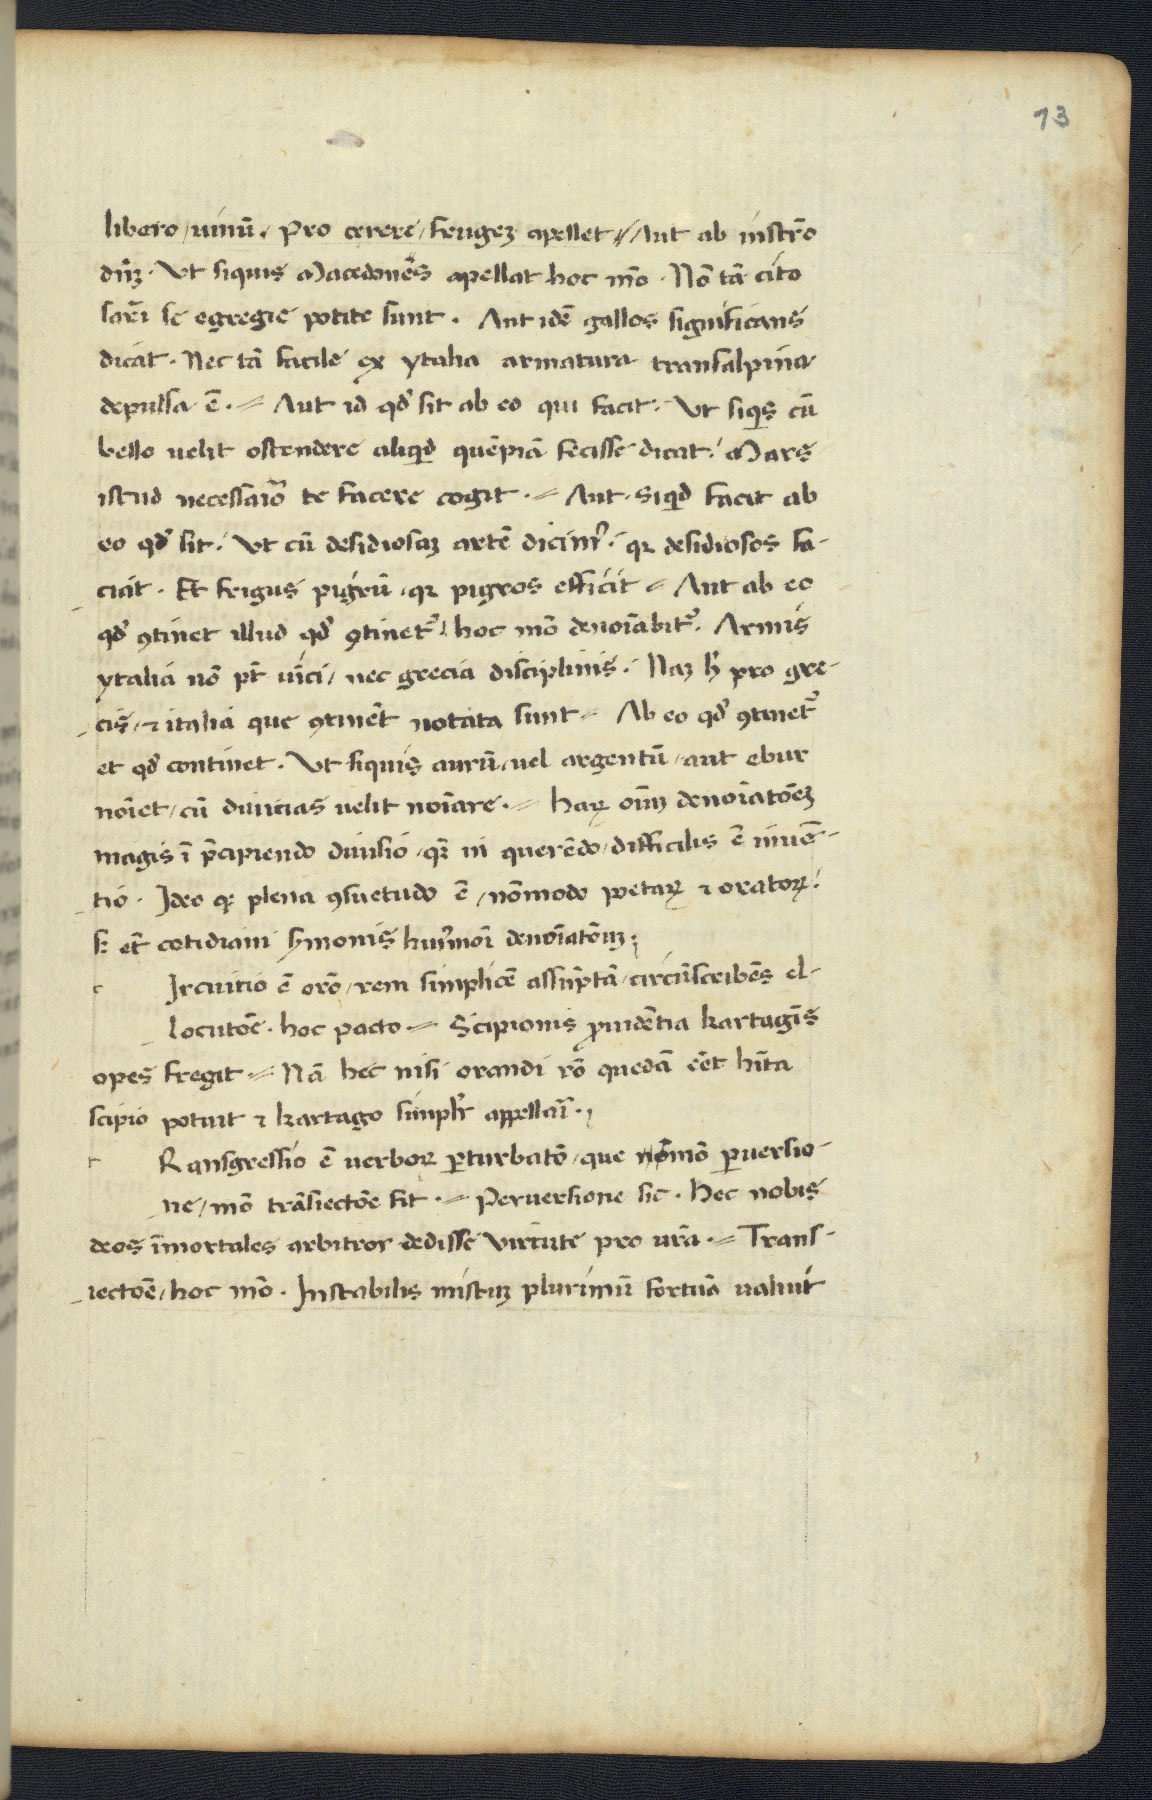 73
libero / uinū. Pro cerere / frugeꝫ apellet // Aut ab instr̄o
dn̄ꝫ. Vt siquis Macedonēs apellat hoc mō. Nō tā cito
sarēi se egregie potite sunt. Aut idē gallos significans
dicat. Nec tā facile ex ytalia armatura transalpina
depulsa ē. Aut id qđ fit ab eo qui facit. Vt siqͥs cū
bello uelit ostendere aliqͥd quēpiā fecisse dicat. Mars
istud necessaͥo te facere cogit. Aut. siqͥd facit ab
eo qđ fit. Vt cū desidiosaꝫ artē dicimꝰ. qꝛ desidiosos fa-
ciat. Et frigus pigrū. qꝛ pigros efficit Aut ab eo
qđ ꝯtinet illud qđ ꝯtinetᷣ hoc mō denoīabitᷣ. Armis
ytalia nō pt̄ uīci / nec grecia disciplinis. Naꝫ ħ pro gre-
cis / ⁊ italia que ꝯtinēt notata sunt Ab eo qđ ꝯtinetᷣ
et qđ continet. Vt siquis aurū / uel argentū / aut ebur
noīet / cū diuitias uelit noīare. harꝫ oīuꝫ denoīatōeꝫ
magis ī p̄cipiendo diuisio. qꝫ in querēdo / difficilis ē inuē-
tio. Ideo qꝫ plena ꝯsuetudo ē / nōmodo poetaꝝ ⁊ oratoꝝ.
sꝫ et̄ cotidiani sꝰmonis huiꝰmōi denoīatōnuꝫ;
c Ircuitio ē orō / rem simplicē assūptā / circūscribēs el-
locutōe. hoc pacto Scipionis ꝓuidētia kartagīs
opes fregit Nā hec nisi orandi rō quedā eēt hīta
scipio potuit ⁊ kartago simplr̄ appellari.
t Ransgressio ē uerboꝝ ꝑturbatō / que nōmō ꝑuersio-
ne / mō trāsiectōe fit. Peruersione sic. Hec nobis
deos īmortales arbitror dedisse virtute pro ur̄a. Trans-
iectōe / hoc mō. Instabilis in istuꝫ plurimū fortuā ualuit